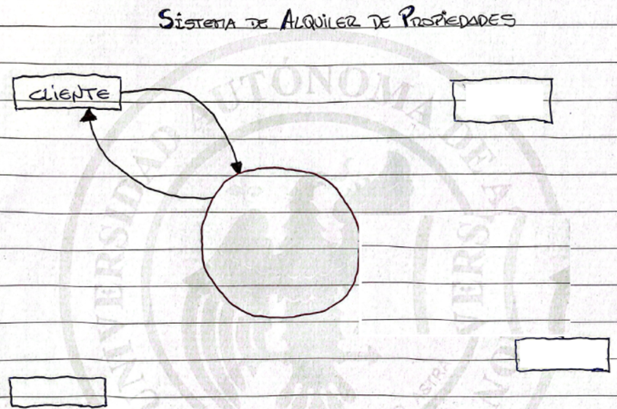 Sistema de Alquiler de Propiedades
CLIENTE
UNIVERSIDAD AUTÓNOMA DE